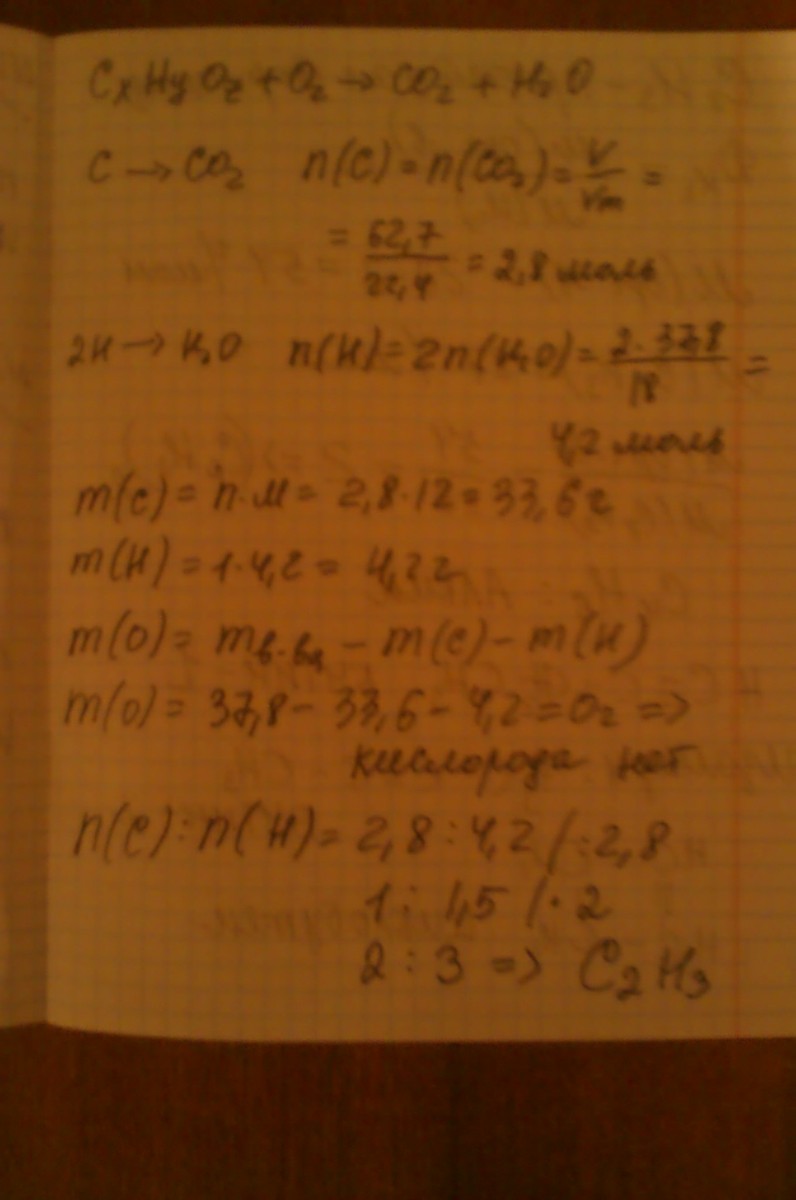 CxHyOz + O₂ → CO₂ + H₂O
C → CO₂ n(C) = n(CO₂) = V/Vm =
= 62,7/22,4 = 2,8 моль
2H → H₂O n(H) = 2n(H₂O) = 2·37,8/18 =
4,2 моль
m(c) = n·M = 2,8·12 = 33,6 г
m(H) = 1·4,2 = 4,2 г
m(O) = mв-ва - m(C) - m(H)
m(O) = 37,8 - 33,6 - 4,2 = 0 г =>
кислорода нет
n(C) : n(H) = 2,8 : 4,2 / : 2,8
1 : 1,5 / · 2
2 : 3 => C₂H₃